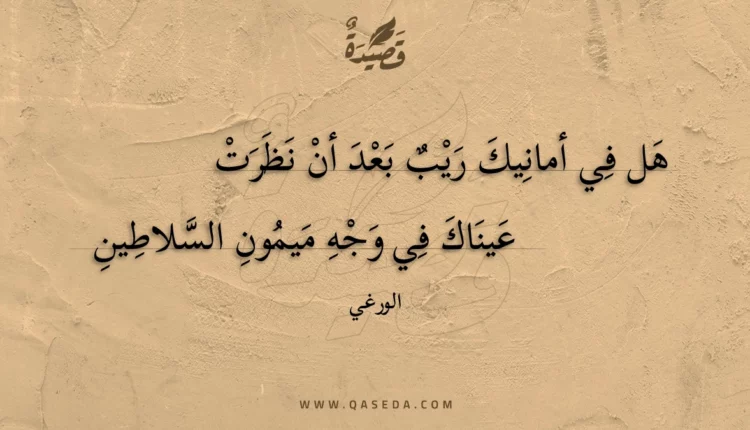 قَصِيْدَةٌ
هَل فِي أمانِيكَ رَيْبٌ بَعْدَ أنْ نَظَرَتْ
عَينَاكَ فِي وَجْهِ مَيمُونِ السَّلاطِينِ
الورغي
WWW.QASEDA.COM